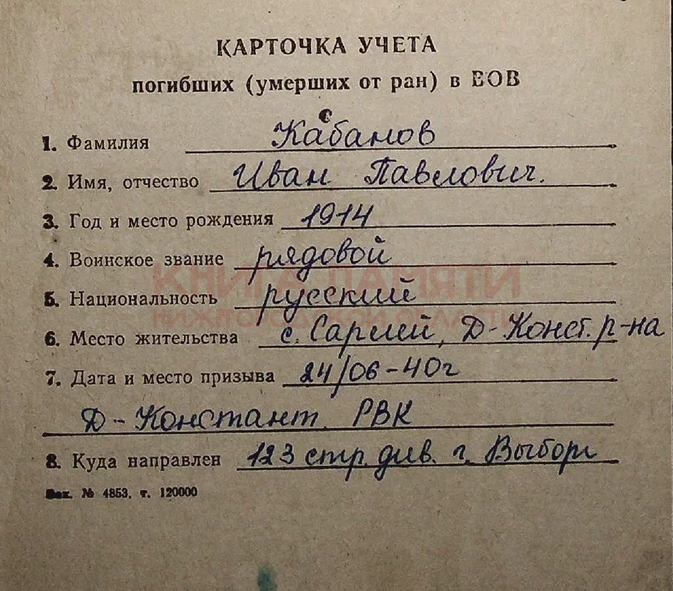 КАРТОЧКА УЧЕТА
погибших (умерших от ран) в ВОВ
1. Фамилия Кабанов
2. Имя, отчество Иван Павлович.
3. Год и место рождения 1914
4. Воинское звание рядовой
КНИГА ПАМЯТИ
5. Национальность русский
НИЖЕГОРОДСКОЙ ОБЛАСТИ
6. Место жительства с. Сарлей, Д-Конст. р-на
7. Дата и место призыва 24/06-40г
Д-Констант. РВК
8. Куда направлен 123 стр. див. г. Выборг
Зак. № 4853. т. 120000